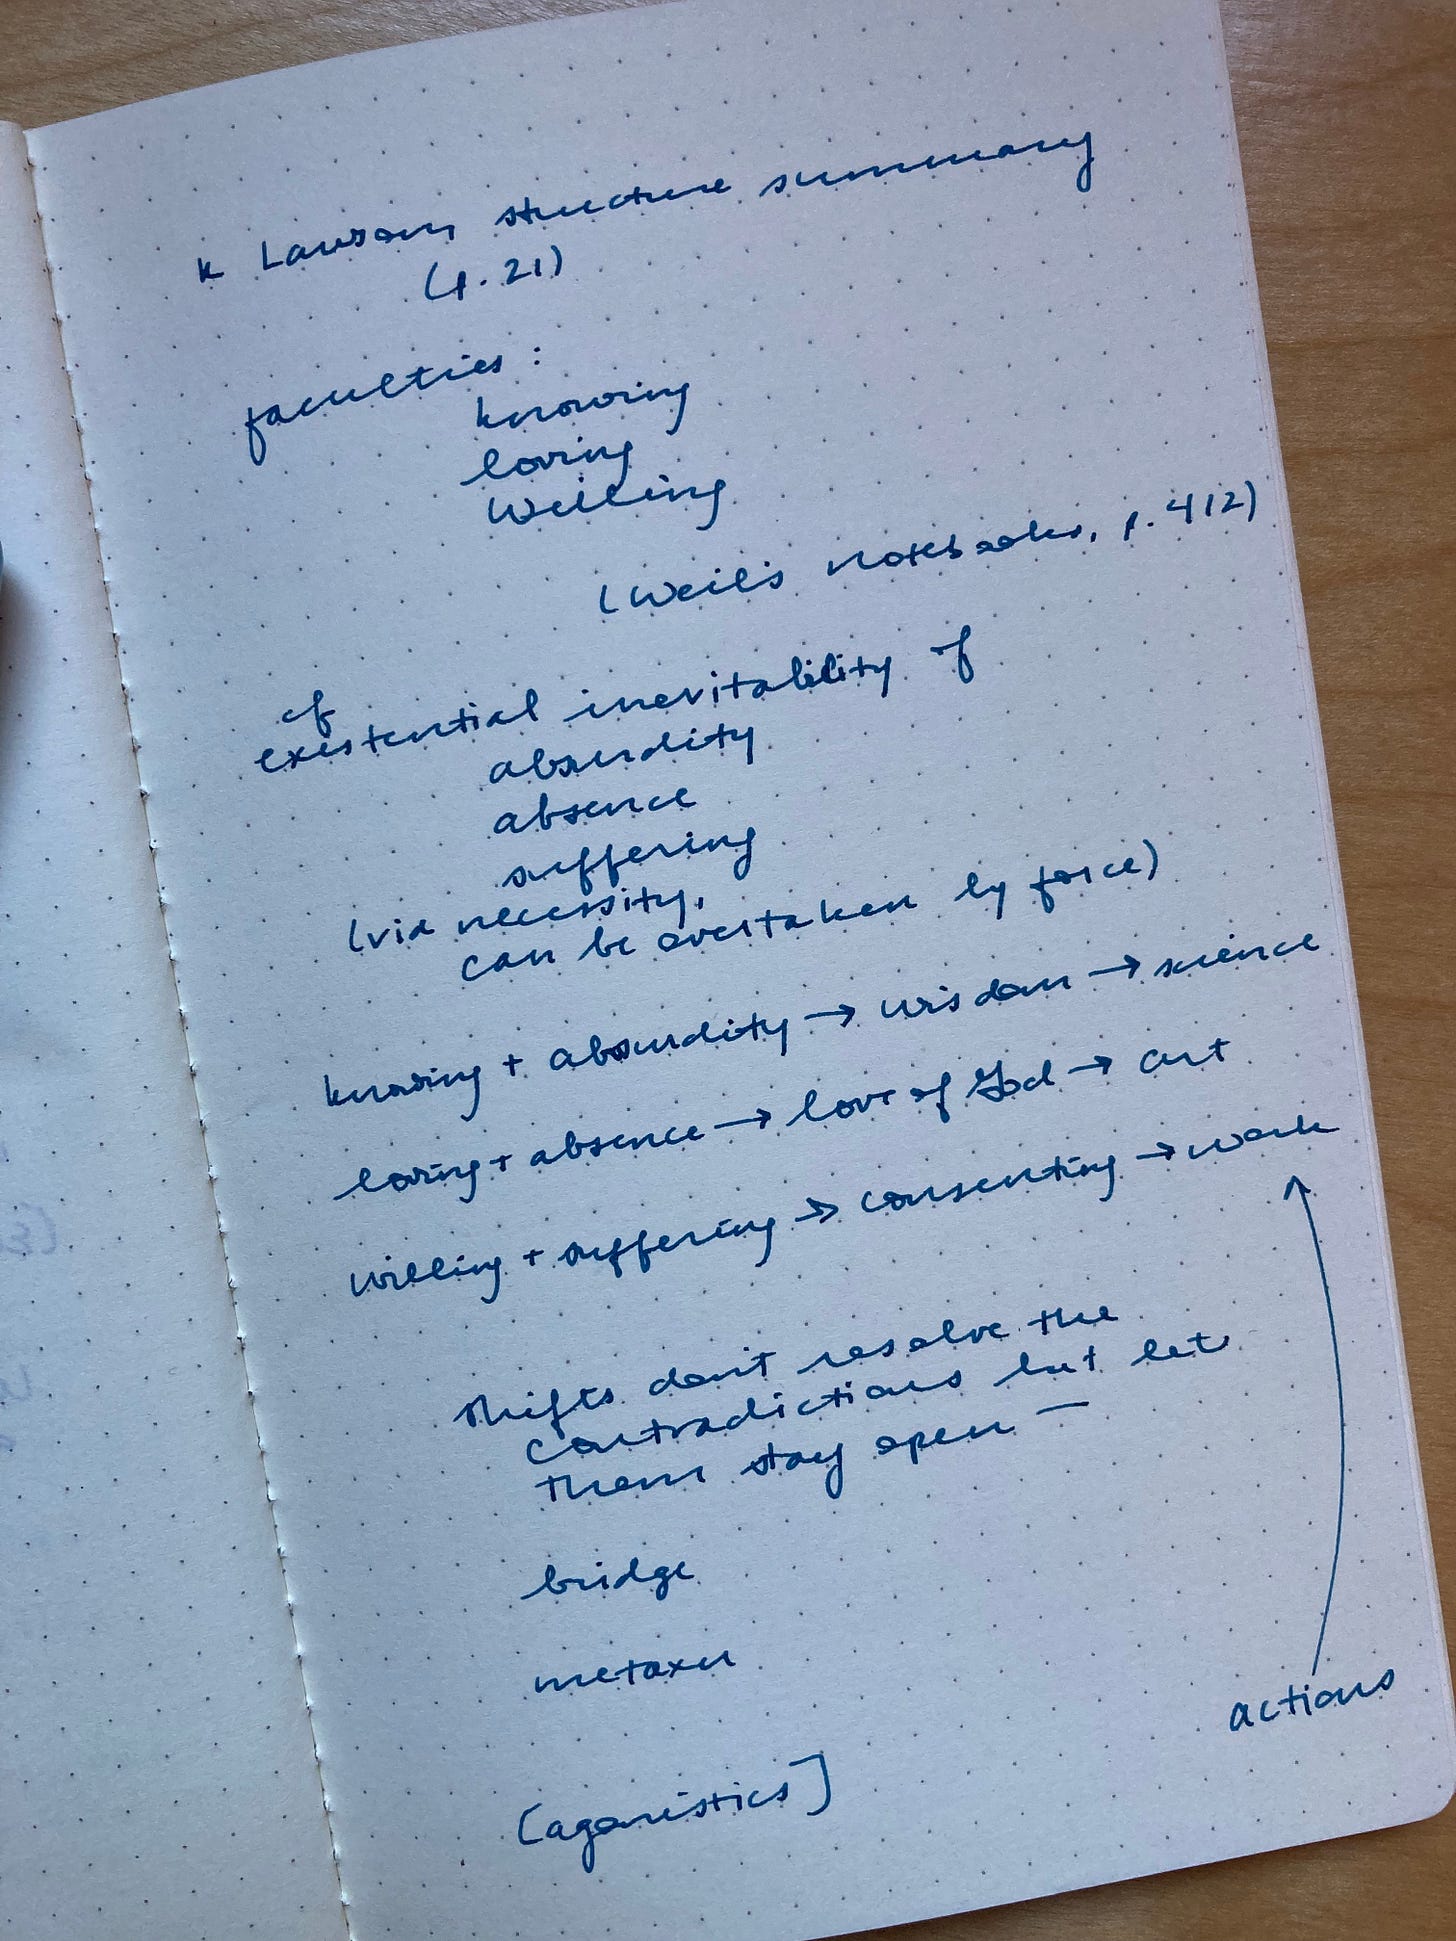 K Lawson structure summary
(p. 21)
faculties:
knowing
loving
willing
(Weil's notebooks, p. 412)
cf
existential inevitability of
absurdity
absence
suffering
(via necessity,
can be overtaken by force)
knowing + absurdity → wisdom → science
loving + absence → love of God → art
willing + suffering → consenting → work
shifts don't resolve the
contradictions but let
them stay open —
bridge
metaxu
actions
[agonistics]